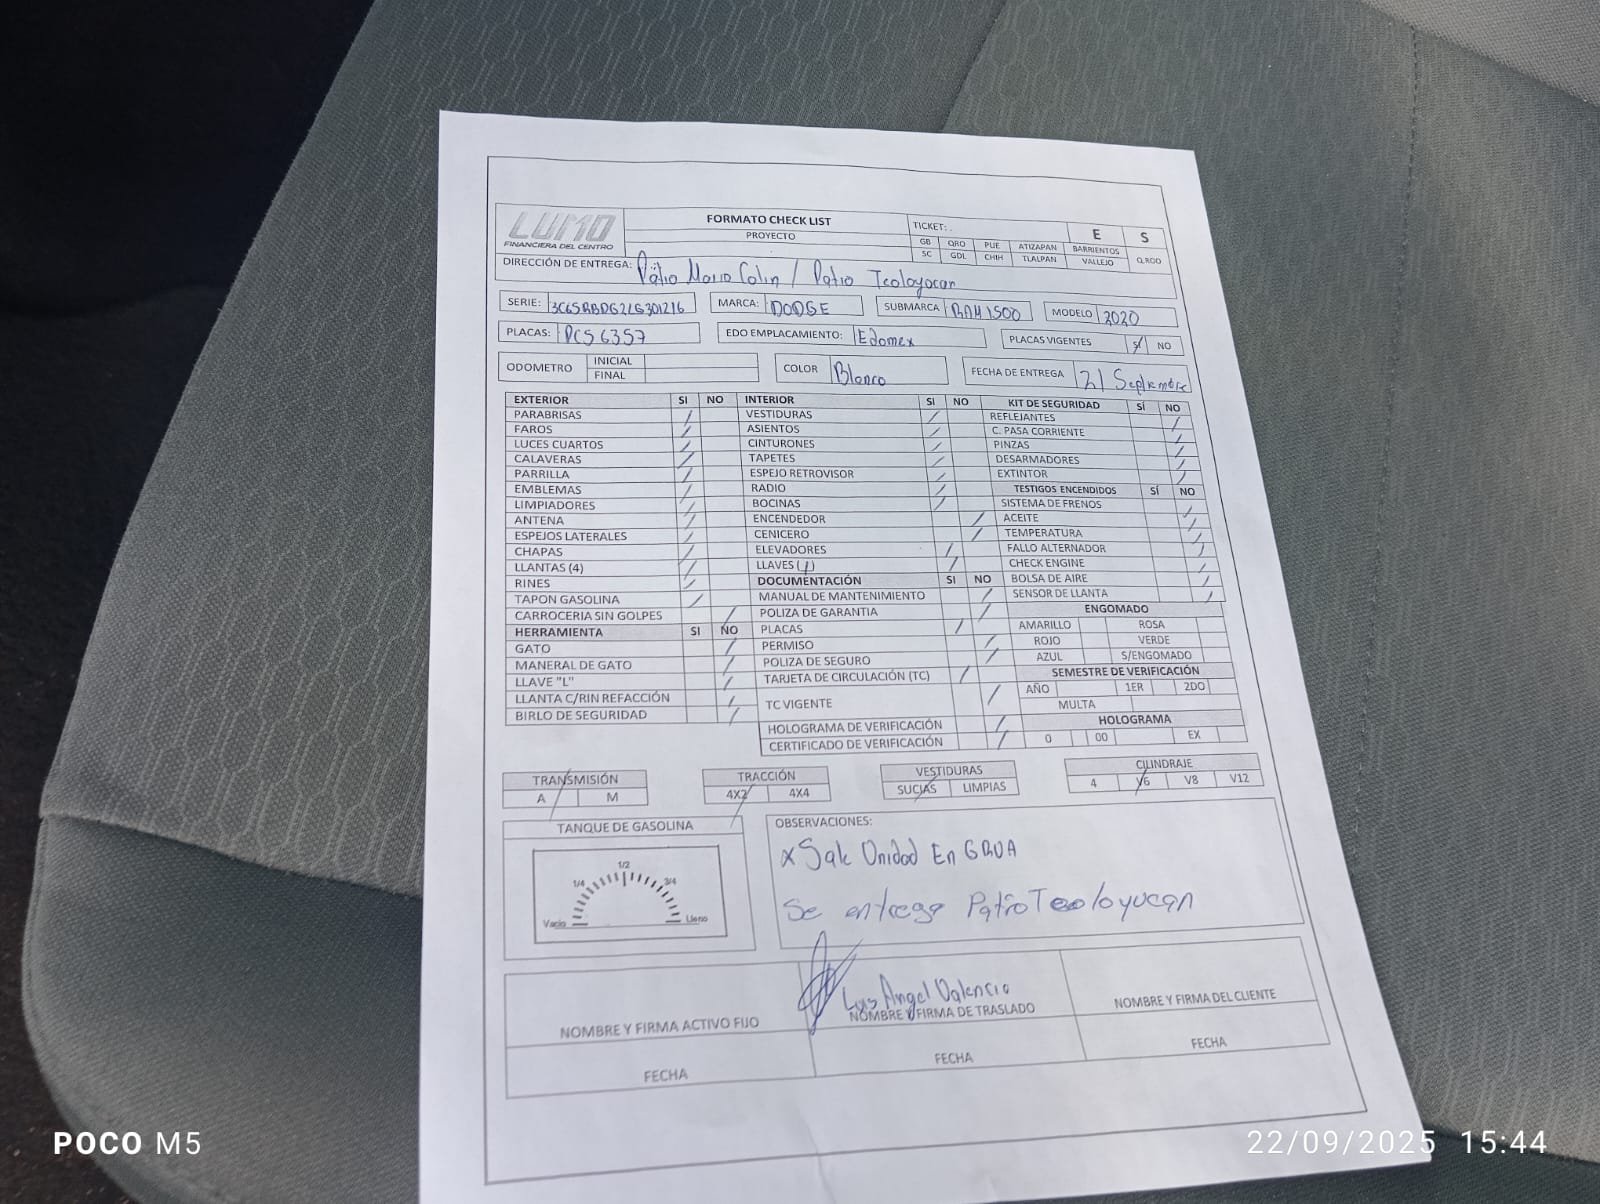 LUMO
FINANCIERA DEL CENTRO
FORMATO CHECK LIST
PROYECTO
TICKET:
E S
GB QRO PUE ATIZAPAN BARRIENTOS Q.ROO
SC GDL CHIH TLALPAN VALLEJO
DIRECCIÓN DE ENTREGA: Patio Mario Colin / Patio Teoloyocan
SERIE: MARCA: DODGE SUBMARCA RAM 1500 MODELO 2020
PLACAS: EDO EMPLACAMIENTO: Edomex PLACAS VIGENTES SÍ NO
ODOMETRO INICIAL
FINAL
COLOR Blanco FECHA DE ENTREGA 21 Septiembre
EXTERIOR SI NO INTERIOR SI NO KIT DE SEGURIDAD SÍ NO
PARABRISAS VESTIDURAS REFLEJANTES
FAROS ASIENTOS C. PASA CORRIENTE
LUCES CUARTOS CINTURONES PINZAS
CALAVERAS TAPETES DESARMADORES
PARRILLA ESPEJO RETROVISOR EXTINTOR
EMBLEMAS RADIO TESTIGOS ENCENDIDOS SÍ NO
LIMPIADORES BOCINAS SISTEMA DE FRENOS
ANTENA ENCENDEDOR ACEITE
ESPEJOS LATERALES CENICERO TEMPERATURA
CHAPAS ELEVADORES FALLO ALTERNADOR
LLANTAS (4) LLAVES (1) CHECK ENGINE
RINES DOCUMENTACIÓN SI NO BOLSA DE AIRE
TAPON GASOLINA MANUAL DE MANTENIMIENTO SENSOR DE LLANTA
CARROCERIA SIN GOLPES POLIZA DE GARANTIA ENGOMADO
HERRAMIENTA SI NO PLACAS AMARILLO ROSA
GATO PERMISO ROJO VERDE
MANERAL DE GATO POLIZA DE SEGURO AZUL S/ENGOMADO
LLAVE "L" TARJETA DE CIRCULACIÓN (TC) SEMESTRE DE VERIFICACIÓN
LLANTA C/RIN REFACCIÓN TC VIGENTE AÑO 1ER 2DO
BIRLO DE SEGURIDAD MULTA
HOLOGRAMA DE VERIFICACIÓN HOLOGRAMA
CERTIFICADO DE VERIFICACIÓN 0 00 EX
TRANSMISIÓN TRACCIÓN VESTIDURAS CILINDRAJE
A M 4X2 4X4 SUCIAS LIMPIAS 4 V6 V8 V12
TANQUE DE GASOLINA
Vacio 1/4 1/2 3/4 Lleno
OBSERVACIONES:
x Sale Unidad En GRUA
Se entrega Patio Teoloyucan
Luis Angel Valencia
NOMBRE Y FIRMA ACTIVO FIJO NOMBRE Y FIRMA DE TRASLADO NOMBRE Y FIRMA DEL CLIENTE
FECHA FECHA FECHA
POCO M5
22/09/2025 15:44